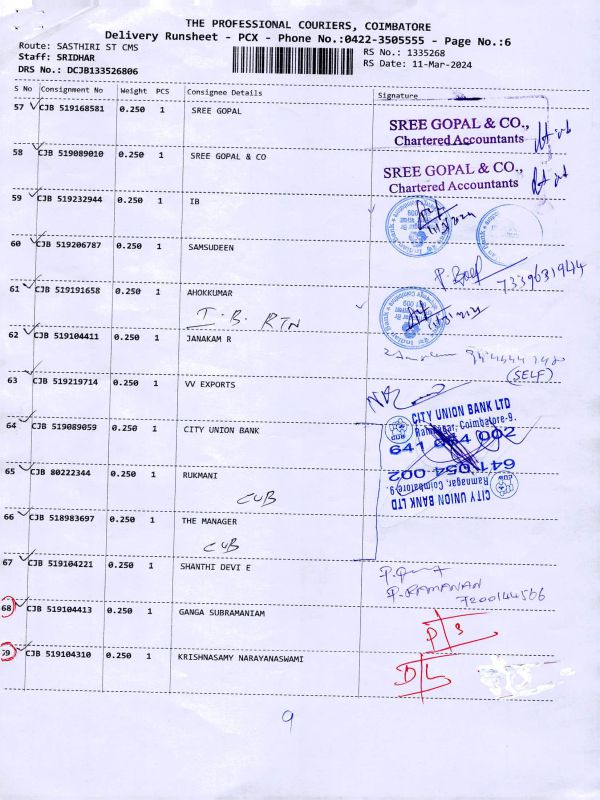 THE PROFESSIONAL COURIERS, COIMBATORE
Delivery Runsheet - PCX - Phone No.:0422-3505555 - Page No.:6
Route: SASTHIRI ST CMS
Staff: SRIDHAR
DRS No.: DCJB133526806
RS No.: 1335268
RS Date: 11-Mar-2024
S No Consignment No Weight PCS Consignee Details Signature
57 CJB 519168581 0.250 1 SREE GOPAL
SREE GOPAL & CO.,
Chartered Accountants
58 CJB 519089010 0.250 1 SREE GOPAL & CO
SREE GOPAL & CO.,
Chartered Accountants
59 CJB 519232944 0.250 1 IB
60 CJB 519206787 0.250 1 SAMSUDEEN
7339631944
61 CJB 519191658 0.250 1 AHOKKUMAR
I.B. RTN
62 CJB 519104411 0.250 1 JANAKAM R
(SELF)
63 CJB 519219714 0.250 1 VV EXPORTS
64 CJB 519089059 0.250 1 CITY UNION BANK
CITY UNION BANK LTD
Ramnagar, Coimbatore-9.
641 054 002
65 CJB 80222344 0.250 1 RUKMANI
CUB
641 054 002
Ramnagar, Coimbatore-9.
CITY UNION BANK LTD
66 CJB 518983697 0.250 1 THE MANAGER
CUB
67 CJB 519104221 0.250 1 SHANTHI DEVI E
P. RAMANAN
7200144566
68 CJB 519104413 0.250 1 GANGA SUBRAMANIAM
P S
69 CJB 519104310 0.250 1 KRISHNASAMY NARAYANASWAMI
D L
9